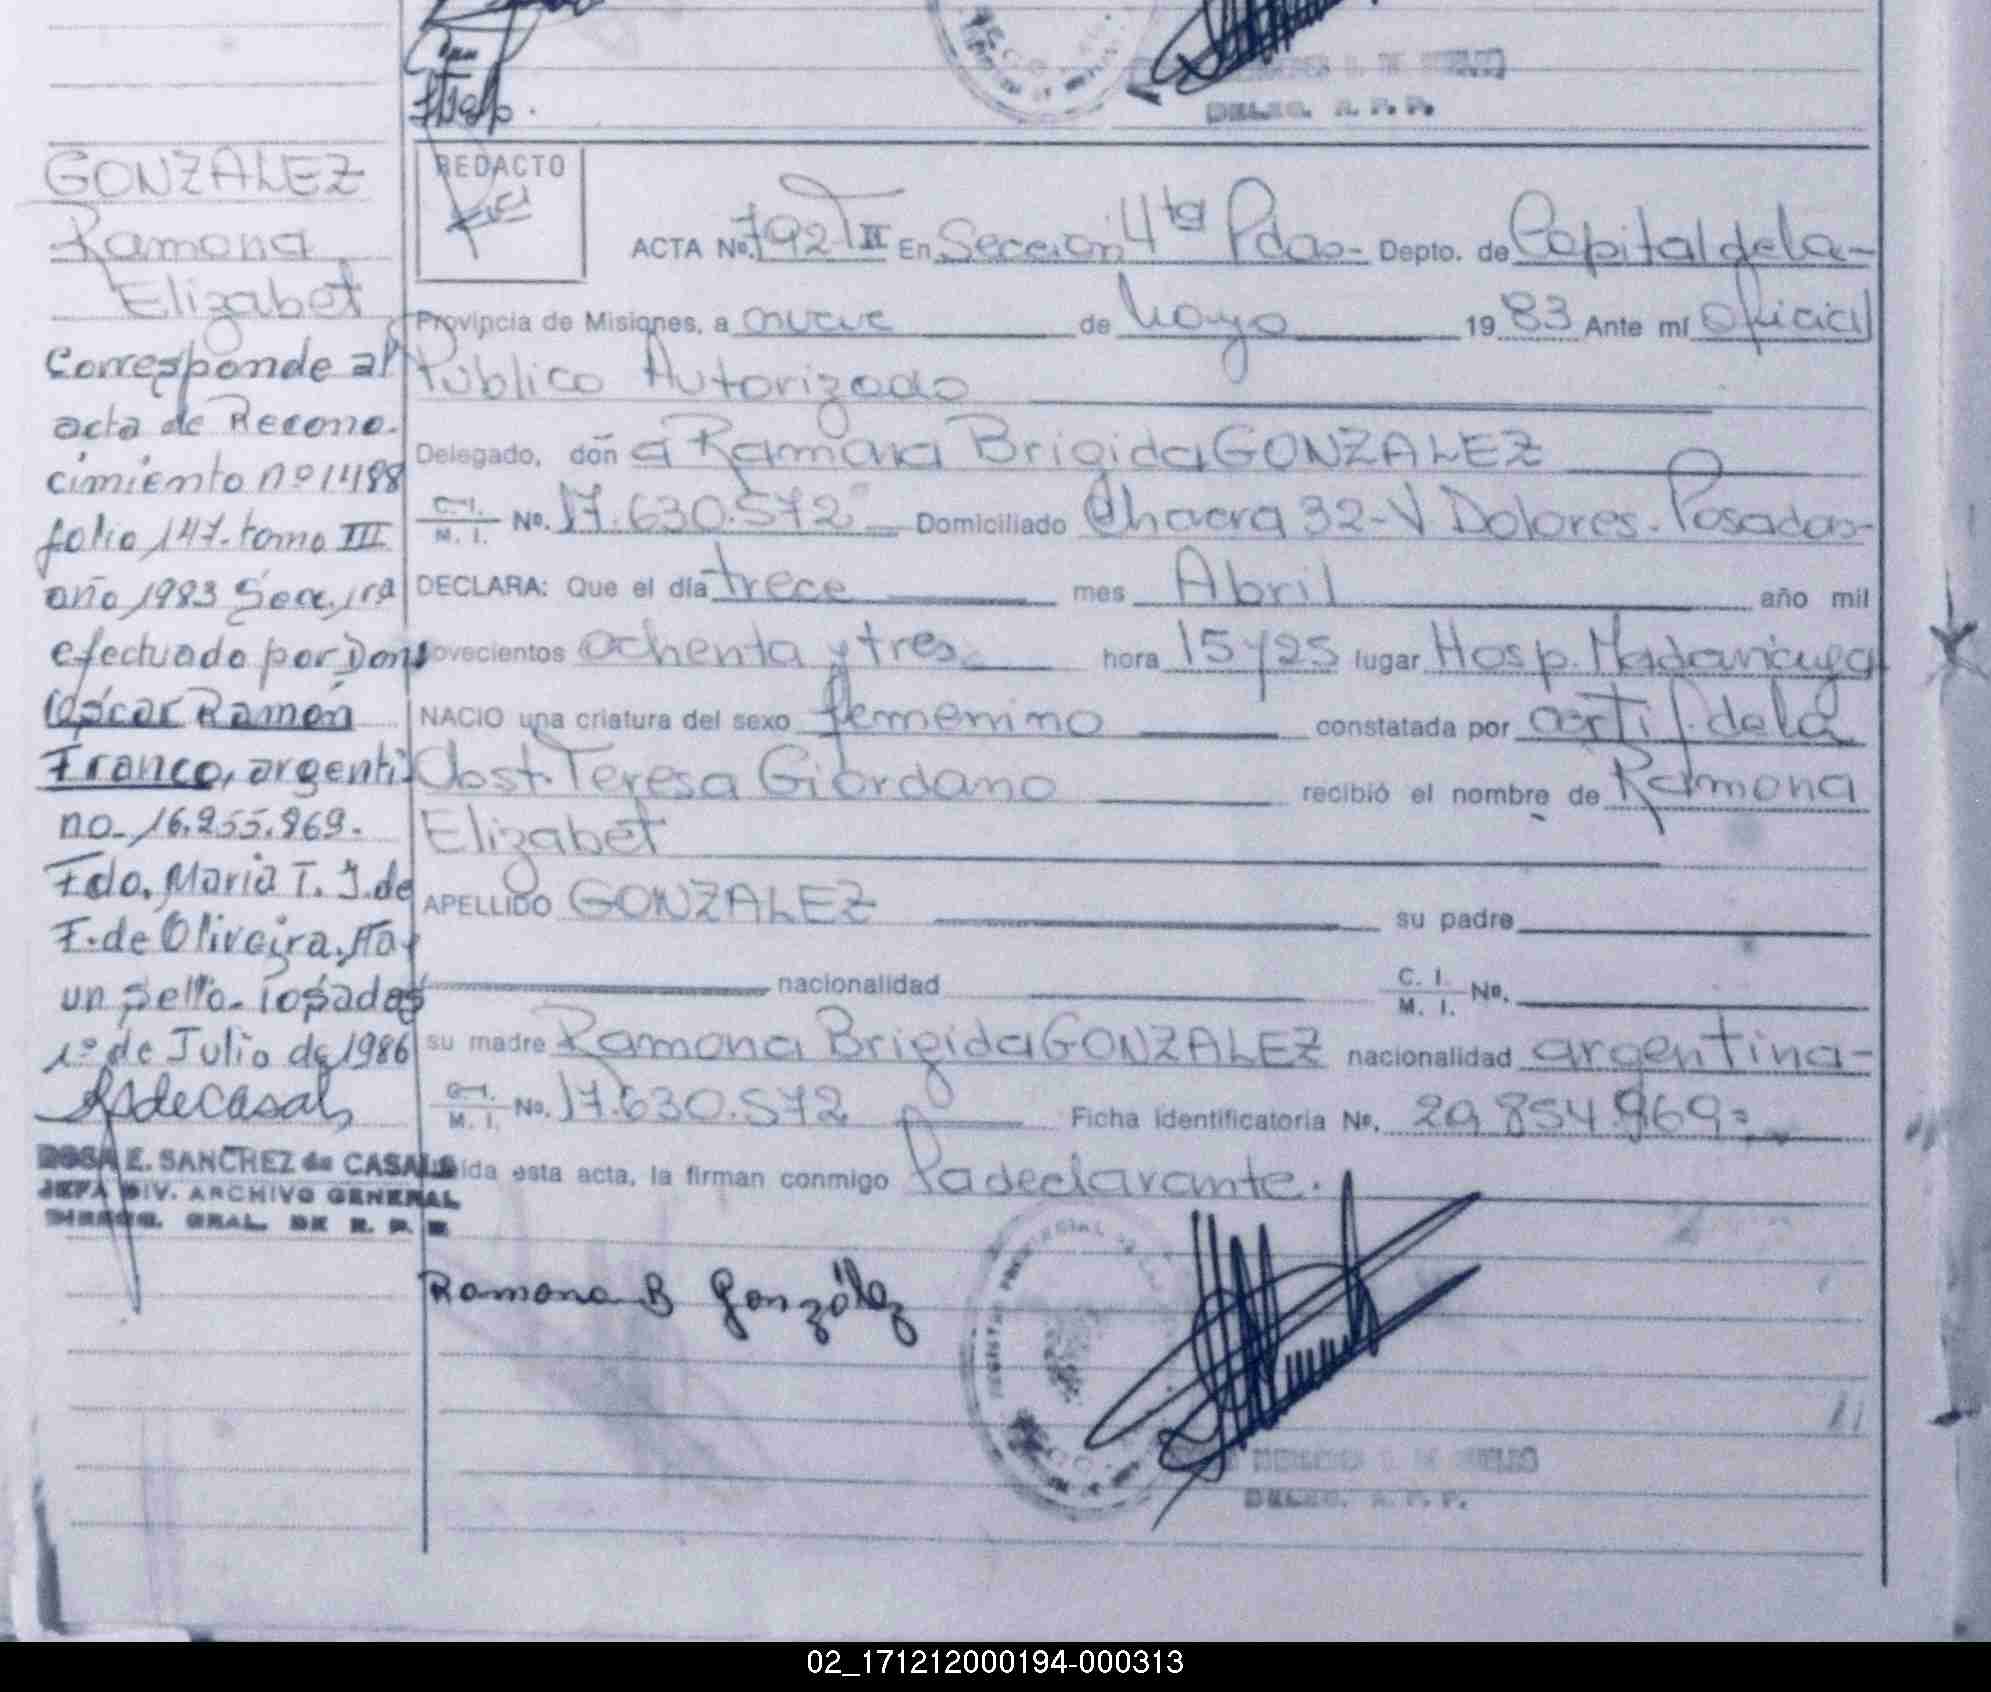 DELEG. R. P. P.
GONZALEZ
Ramona
Elizabet
Corresponde al
acta de Recono-
cimiento nº 1488
folio 147. tomo III
año 1983 Secc. 1ra
efectuado por Don
Oscar Ramón
Franco, argenti
no. 16.955.969.
Fdo. Maria T. J. de
F. de Oliveira. Hay
un sello. Posadas
1º de Julio de 1986
ROSA E. SANCHEZ de CASALS
JEFA DIV. ARCHIVO GENERAL
DIRECC. GRAL. DE R. P. P.
REDACTO
ACTA Nº. 792 T II En Sección 4ta Pdas- Depto. de Capital de la-
Provincia de Misiones, a nueve de Mayo 1983 Ante mí oficial
Público Autorizado
Delegado, doña Ramona Brigida GONZALEZ
C. I. M. I. Nº. 17.630.572 Domiciliado Chacra 32-V. Dolores. Posadas-
DECLARA: Que el día trece mes Abril año mil
novecientos ochenta y tres hora 15 y 25 lugar Hosp. Madariaga
NACIO una criatura del sexo femenino constatada por certif. de la
Obst. Teresa Giordano recibió el nombre de Ramona
Elizabet
APELLIDO GONZALEZ su padre
nacionalidad C. I. M. I. Nº.
su madre Ramona Brigida GONZALEZ nacionalidad argentina-
C. I. M. I. Nº. 17.630.572 Ficha identificatoria Nº. 29.854.969=
Leída esta acta, la firman conmigo la declarante.
Ramona B González
DELEG. R. P. P.
02_171212000194-000313